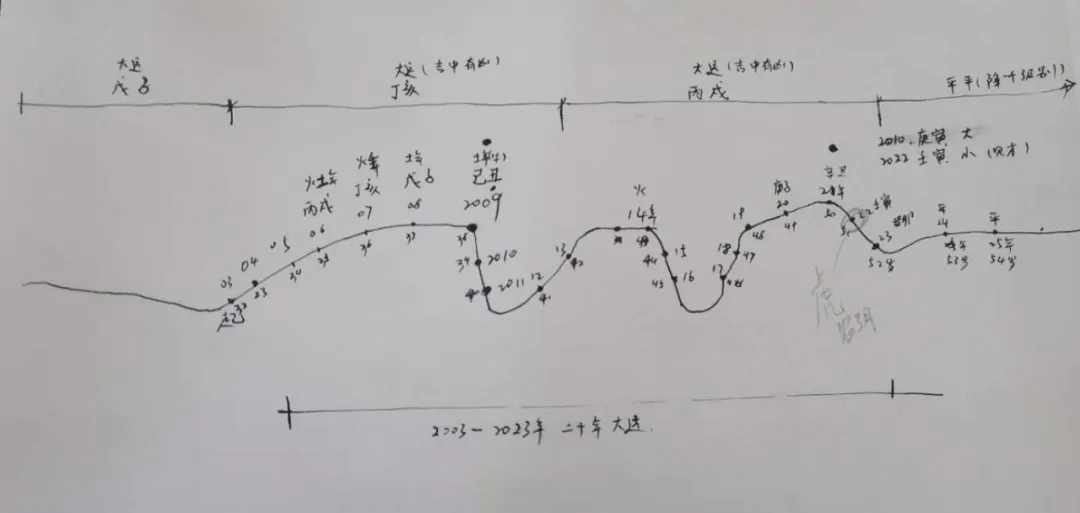 大运
戊子
大运(吉中有凶)
丁亥
大运(吉中有凶)
丙戌
平平(降一级别)
2010.庚寅 大
2022 壬寅 小
火
丙戌
丁亥
戊子
己丑
2009
03 04 05 06 07 08
起
32 33 34 35 36 37 38
39 2010
2011 12 13
41 42
火
14年
15
44
16
45
17
18
47
19
48
庚子
20
49
辛丑
21年
50
22 壬寅
51
23
52岁
平
24年
53岁
平
25年
54岁
虎
2003-2023年 二十年大运.